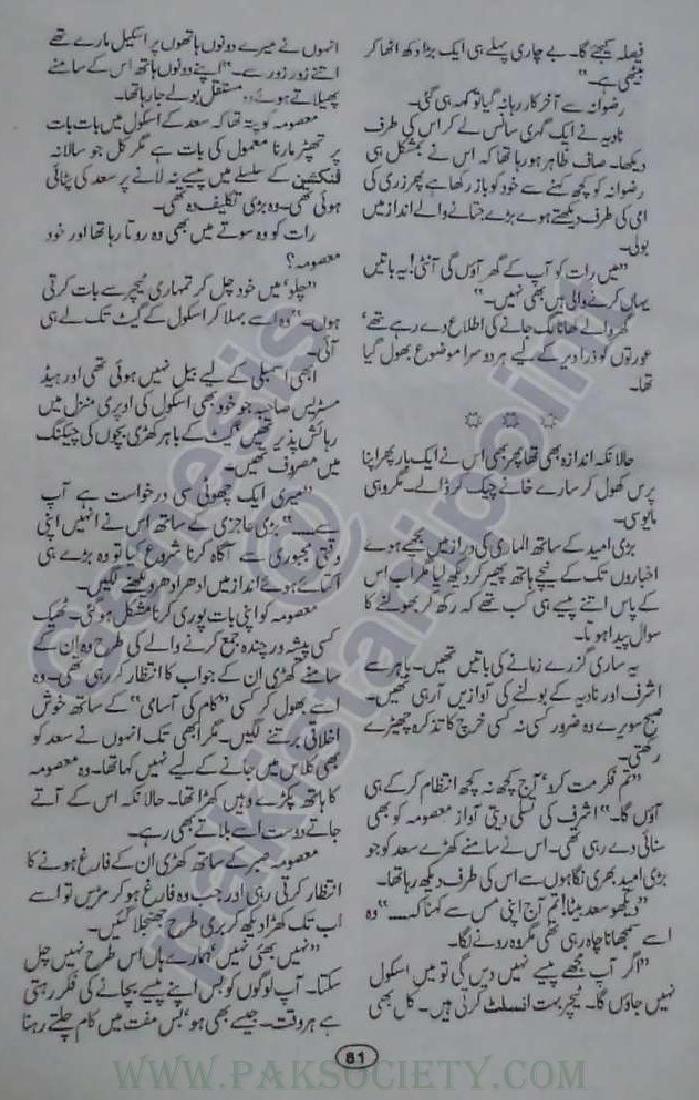 فیصلہ کیجئے گا۔ بے چاری پہلے ہی ایک بڑا دکھ اٹھا کر
بیٹھی ہے۔"
رضوانہ سے آخر کار رہا نہ گیا تو کہہ ہی گئی۔
نادیہ نے ایک گہری سانس لے کر اس کی طرف
دیکھا۔ صاف ظاہر ہو رہا تھا کہ اس نے بمشکل ہی
رضوانہ کو کچھ کہنے سے خود کو باز رکھا ہے پھر زری کی
امی کی طرف دیکھتے ہوے بڑے جتانے والے انداز میں
بولی۔
"میں رات کو آپ کے گھر آؤں گی آنٹی! یہ باتیں
یہاں کرنے والی ہیں بھی نہیں۔"
گھر والے کھانا لگ جانے کی اطلاع دے رہے تھے'
عورتوں کو ذرا دیر کے لیے ہر دوسرا موضوع بھول گیا
تھا۔
حالانکہ اندازہ بھی تھا پھر بھی اس نے ایک بار پھر اپنا
پرس کھول کر سارے خانے چیک کر ڈالے۔ مگر وہی
مایوسی۔
بڑی امید کے ساتھ الماری کی دراز میں بچھے ہوے
اخباروں تک کے نیچے ہاتھ پھیر کر دیکھ لیا مگر اب اس
کے پاس اتنے پیسے ہی کب تھے کہ رکھ کر بھولنے کا
سوال پیدا ہوتا۔
یہ ساری گزرے زمانے کی باتیں تھیں۔ باہر سے
اشرف اور نادیہ کے بولنے کی آوازیں آرہی تھیں۔
صبح سویرے وہ ضرور کسی نہ کسی خرچ کا تذکرہ چھیڑے
رکھتی۔
"تم فکر مت کرو' آج کچھ نہ کچھ انتظام کر کے ہی
آؤں گا۔" اشرف کی تسلی دیتی آواز معصومہ کو بھی
سنائی دے رہی تھی۔ اس نے سامنے کھڑے سعد کو جو
بڑی امید بھری نگاہوں سے اس کی طرف دیکھ رہا تھا۔
"دیکھو سعد بیٹا! تم آج اپنی مس سے کہنا کہ....." وہ
اسے سمجھانا چاہ رہی تھی مگر وہ رونے لگا۔
"اگر آپ مجھے پیسے نہیں دیں گی تو میں اسکول
نہیں جاؤں گا۔ ٹیچر بہت انسلٹ کرتی ہیں۔ کل بھی
انہوں نے میرے دونوں ہاتھوں پر اسکیل مارے تھے
اتنے زور زور سے۔" اپنے دونوں ہاتھ اس کے سامنے
پھیلاتے ہوئے وہ مستقل بولے جا رہا تھا۔
معصومہ کو پتہ تھا کہ سعد کے اسکول میں بات بات
پر تھپڑ مارنا معمول کی بات ہے مگر کل جو سالانہ
فنکشن کے سلسلے میں پیسے نہ لانے پر سعد کی پٹائی
ہوئی تھی۔ وہ بڑی تکلیف دہ تھی۔
رات کو وہ سوتے میں بھی وہ روتا رہا تھا اور خود
معصومہ؟
"چلو' میں خود چل کر تمہاری ٹیچر سے بات کرتی
ہوں۔" وہ اسے بہلا کر اسکول کے گیٹ تک لے ہی
آئی۔
ابھی اسمبلی کے لیے بیل نہیں ہوئی تھی اور ہیڈ
مسٹریس صاحبہ جو خود بھی اسکول کی اوپری منزل میں
رہائش پذیر تھیں' گیٹ کے باہر کھڑی بچوں کی چیکنگ
میں مصروف تھیں۔
"میری ایک چھوٹی سی درخواست ہے آپ
سے....." بڑی عاجزی کے ساتھ اس نے انہیں اپنی
وقتی مجبوری سے آگاہ کرنا شروع کیا تو وہ بڑے ہی
اکتائے ہوئے انداز میں ادھر ادھر دیکھنے لگیں۔
معصومہ کو اپنی بات پوری کرنا مشکل ہو گئی۔ ٹھیک
کسی پیشہ ور چندہ جمع کرنے والے کی طرح وہ ان کے
سامنے کھڑی ان کے جواب کا انتظار کر رہی تھی۔ وہ
اسے بھول کر کسی "کام کی آسامی" کے ساتھ خوش
اخلاقی برتنے لگیں۔ مگر ابھی تک انہوں نے سعد کو
بھی کلاس میں جانے کے لیے نہیں کہا تھا۔ وہ معصومہ
کا ہاتھ پکڑے وہیں کھڑا تھا۔ حالانکہ اس کے آتے
جاتے دوست اسے بلاتے بھی رہے۔
معصومہ صبر کے ساتھ کھڑی ان کے فارغ ہونے کا
انتظار کرتی رہی اور جب وہ فارغ ہو کر مڑیں تو اسے
اب تک کھڑا دیکھ کر بری طرح جھنجلا گئیں۔
"نہیں بھئی نہیں' ہمارے ہاں اس طرح نہیں چل
سکتا۔ آپ لوگوں کو بس اپنے پیسے بچانے کی فکر رہتی
ہے ہر وقت۔ جیسے بھی ہو' بس مفت میں کام چلتے رہنا
81
WWW.PAKSOCIETY.COM
Genesis
@
pakistanipoint